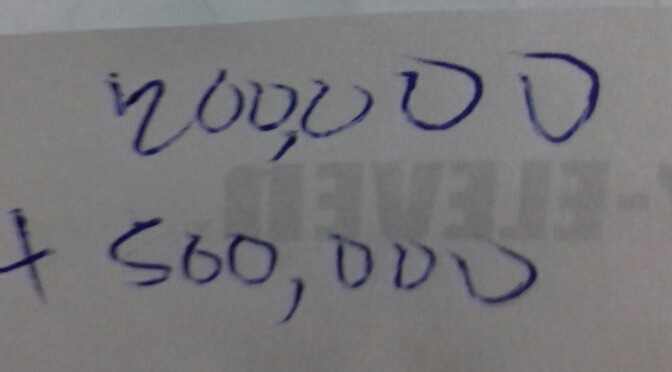 200,000
+ 500,000
7-ELEVEN.